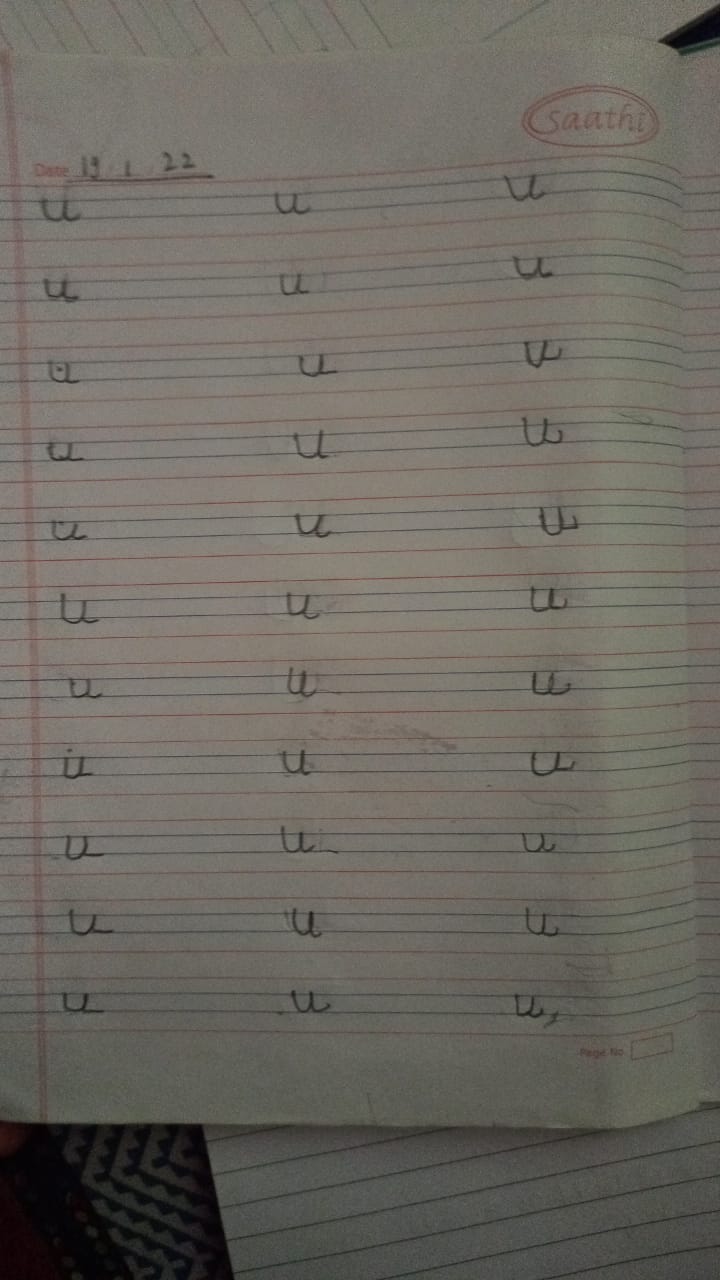 saathi
Date 19 . 1 . 22
u u u
u u u
u u u
u u u
u u u
u u u
u u u
u u u
u u u
u u u
u u u,
Page No